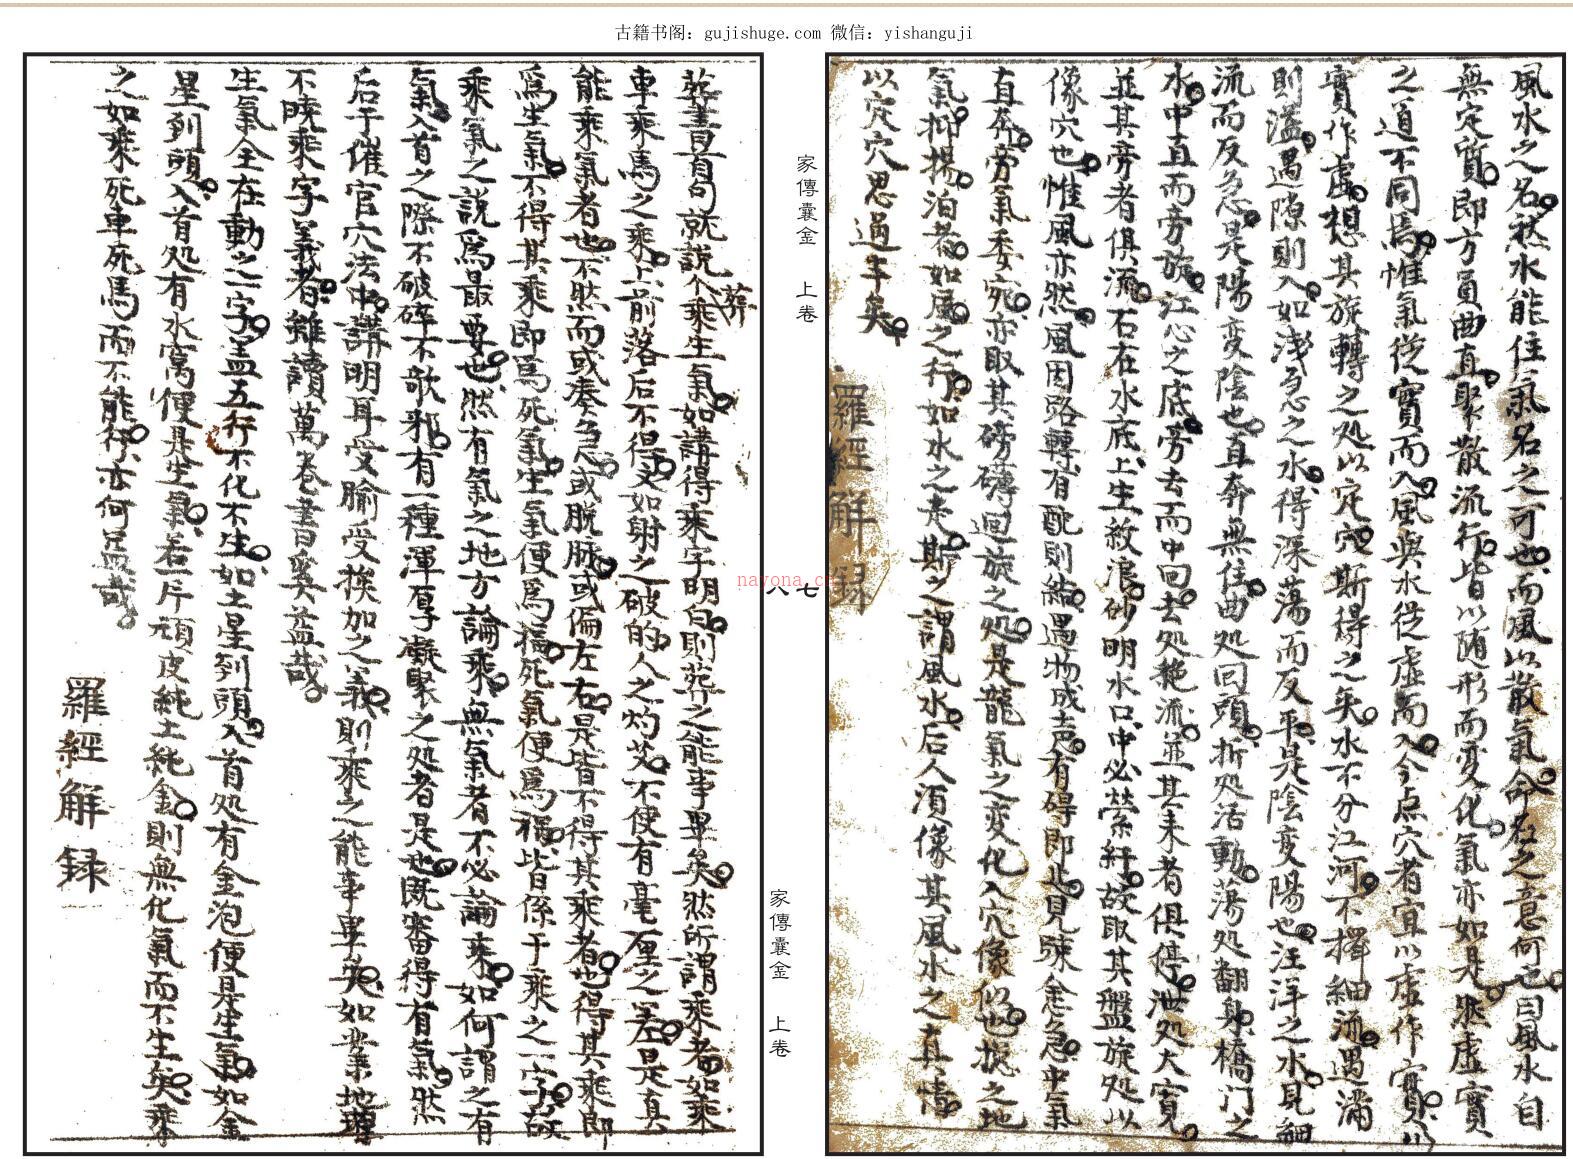 古籍书阁：gujishuge.com 微信：yishanguji
風水之名然水能住氣名之可也而風以散氣命名之意何也曰風水自
無定質即方員曲直聚散流行皆以随形而变化氣亦如是然虛實
之道不同焉惟氣從實而入風與水從虛而入今点穴者宜以虛作實以
實作虛想其旋轉之处以定穴斯得之矣水不分江河不擇細流遇滿
則溢遇隙則入如浅急之水得深蕩而反平是陰变陽也汪洋之水見細
流而反急是陽变陰也直奔無住曲处回頭折处活動蕩处翻身橋门之
水中直而旁旋江心之底旁去而中回去处艳流並其来者俱停泄处大寬
並其旁者俱流石在水底上生紋浪砂明水口中必縈紆故取其盤旋处以
像穴也惟風亦然風因路轉有配則結遇物成声有碍即止見疎念急中氣
直奔旁氣委宛亦取其磅礴迴旋之处是龍氣之变化入穴像似也挨之地
氣抑揚泊若如風之行如水之走斯之謂風水后人須像其風水之真情
以定穴思過半矣
羅經解録
家傳囊金 上卷
七
八
nayona.cn
家傳囊金 上卷
葬書首句就說个乘生氣如講得乘字明白則葬之能事畢矣然所謂乘者如乘
葬
車乘馬之乘上前落后不得又如射之破的人之灼艾不使有毫厘之差是真
能乘氣者也不然而或奏急或脱脉或偏左右是皆不得其乘者也得其乘即
爲生氣不得其乘即爲死氣生氣便爲福死氣便爲禍皆係于乘之一字故
乘氣之說爲最要也然有氣之地方論乘無氣者不必論乘如何謂之有
氣入首之際不破碎不歌邪有一種渾厚凝聚之处者是也既審得有氣然
后于催官穴法中講明耳受腧受挨加之義則乘之能事畢矣如業地理
不曉乘字義者雖讀萬卷書奚益哉
生氣全在動之一字盖五行不化不生如土星到頭入首处有金泡便是生氣如金
星到頭入首处有水窩便是生氣若一斤頑皮純土純金則無化氣而不生矣乘
之如乘死車死馬而不能行亦何益哉
羅經解録